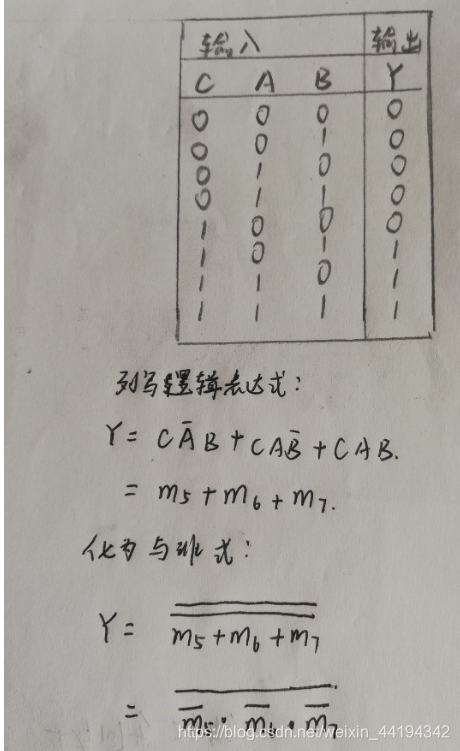 输入 输出
C A B Y
0 0 0 0
0 0 1 0
0 1 0 0
0 1 1 0
1 0 0 0
1 0 1 1
1 1 0 1
1 1 1 1
列写逻辑表达式:
Y = CA̅B + CAB̅ + CAB.
= m₅ + m₆ + m₇.
化为与非式:
Y = \overline{\overline{m₅ + m₆ + m₇}}
= \overline{\overline{m₅} · \overline{m₆} · \overline{m₇}}
https://blog.csdn.net/weixin_44194342